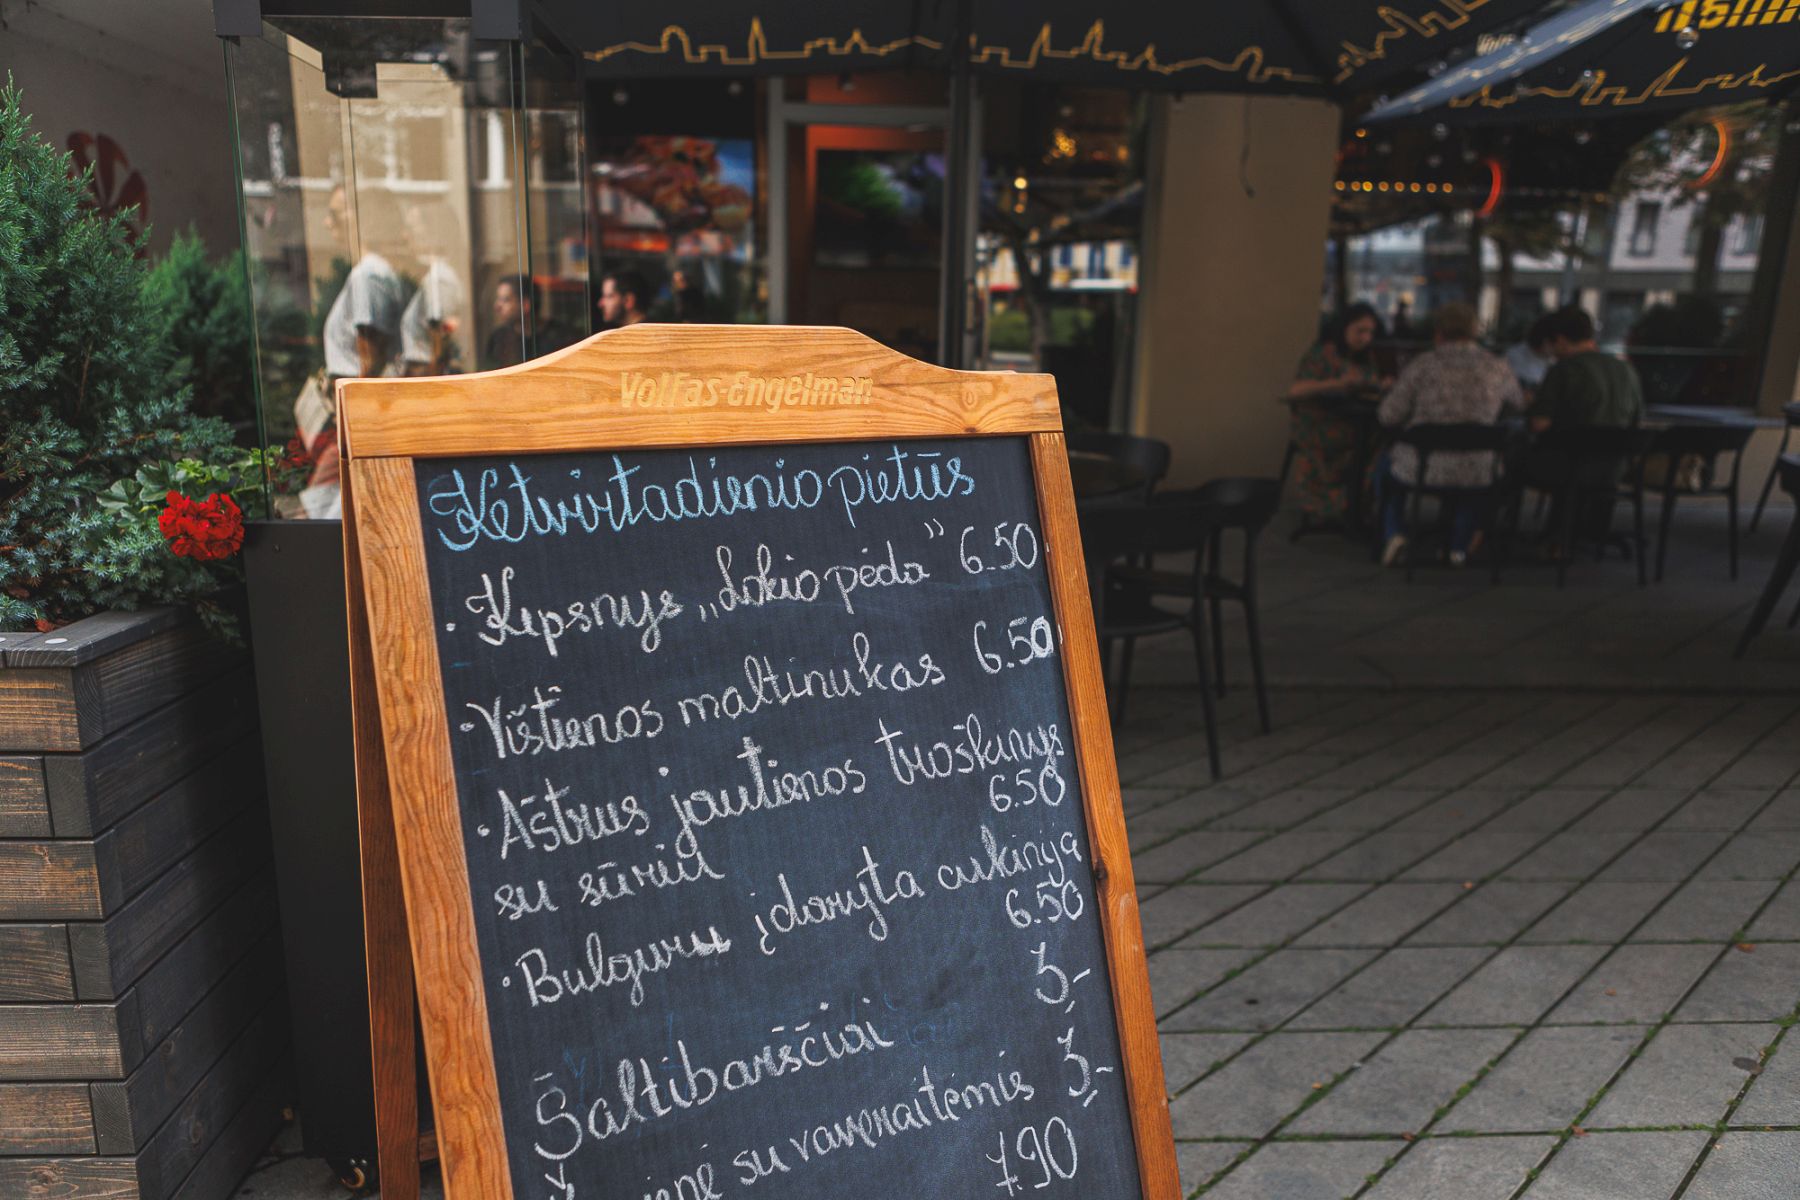 Volfas Engelman
Ketvirtadienio pietūs
· Kepsnys „Lokio pėda” 6.50
· Vištienos maltinukas 6.50
· Aštrus jautienos troškinys
6.50
su sūriu
· Bulguru įdaryta cukinija
6.50
3,-
Šaltibarščiai
3,-
su vovenaitėmis
7.90